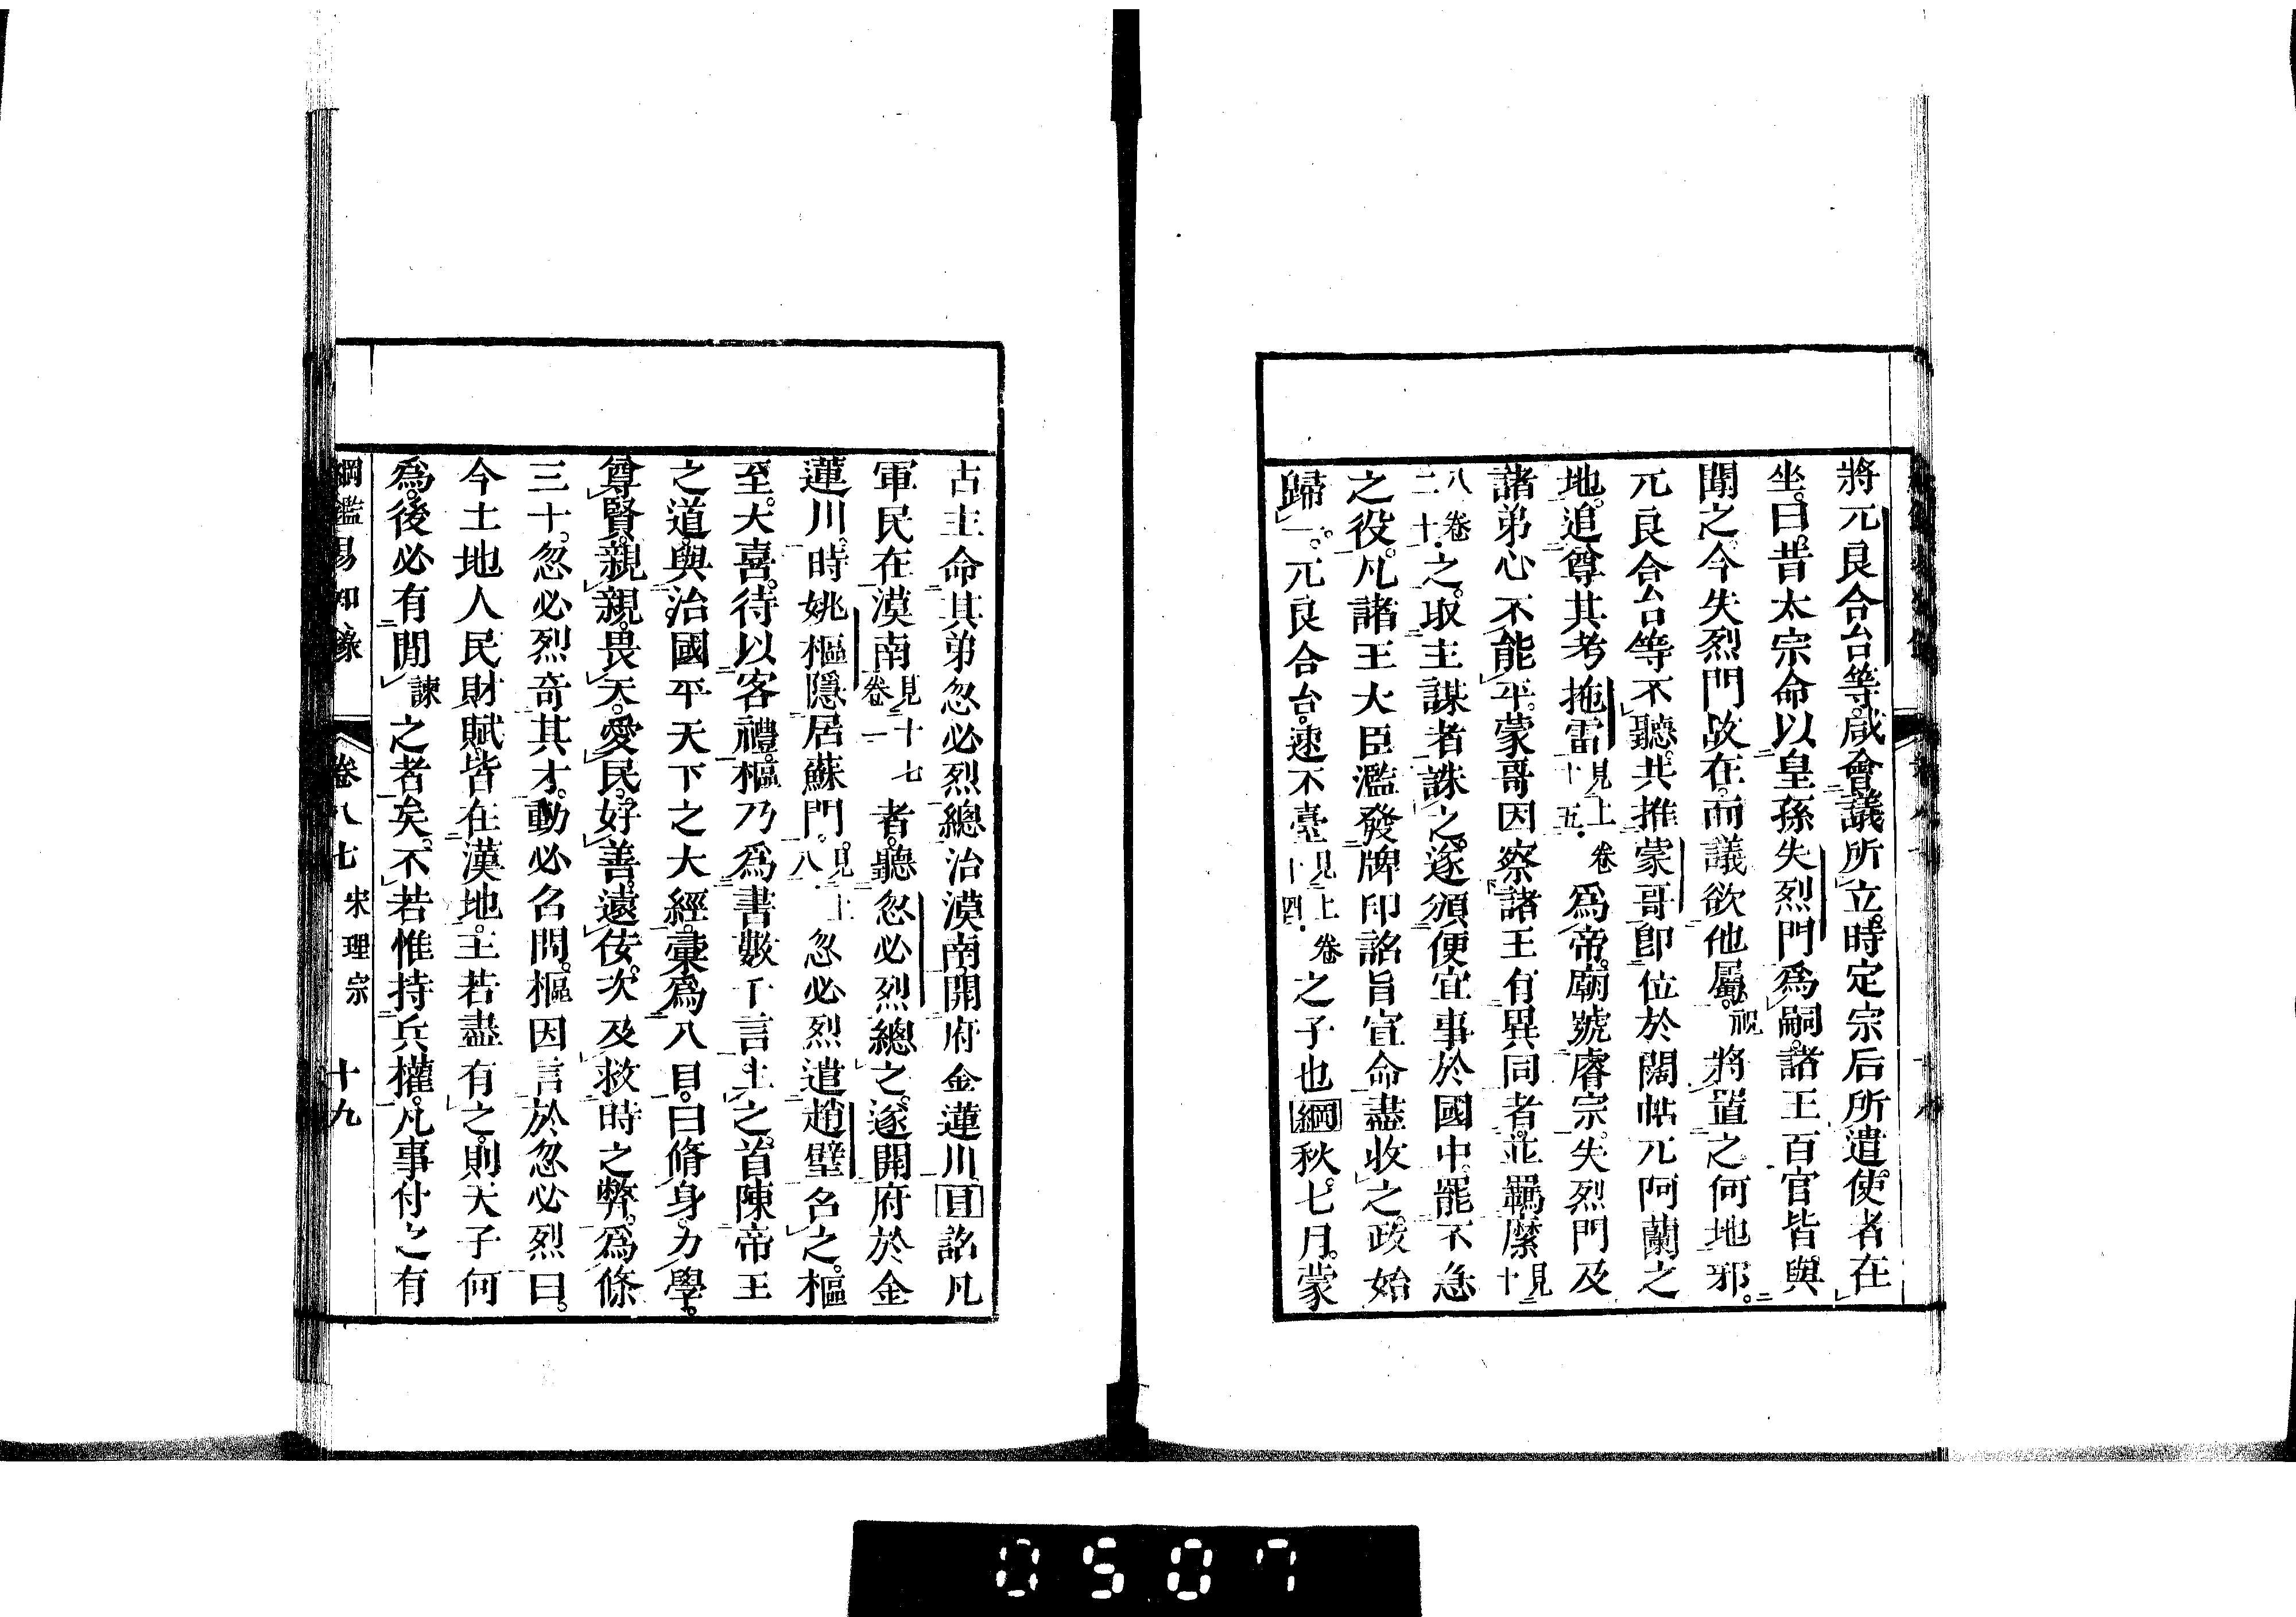 將元良合台等。咸會議所立。時定宗后所遣使者在
坐。曰。昔太宗命以皇孫失烈門爲嗣。諸王百官皆與
聞之。今失烈門故在。而議欲他屬。祝將置之何地邪。
元良合台等不聽。共推蒙哥卽位於闊帖兀阿蘭之
地。追尊其考拖雷見上卷十五。爲帝。廟號睿宗。失烈門及
諸弟心不能平。蒙哥因察諸王有異同者。並羈縻見十
八卷二十。之。取主謀者誅之。遂頒便宜事於國中。罷不急
之役。凡諸王大臣濫發牌印詔旨宣命盡收之。政始
歸一。元良合台。速不臺見上卷十四。之子也綱秋。七月。蒙
古主命其弟忽必烈總治漠南。開府金蓮川。目詔凡
軍民在漠南見十七卷一者。聽忽必烈總之。遂開府於金
蓮川。時姚樞隱居蘇門。見上八。忽必烈遣趙璧召之。樞
至。大喜。待以客禮。樞乃爲書數千言上之。首陳帝王
之道。與治國平天下之大經。彙爲八目。曰脩身。力學。
尊賢。親親。畏天。愛民。好善。遠佞。次及救時之弊。爲條
三十。忽必烈奇其才。動必召問。樞因言於忽必烈曰。
今土地人民財賦。皆在漢地。王若盡有之。則天子何
爲。後必有閒諫之者矣。不若惟持兵權。凡事付之有
綱鑑易知錄 卷八七 宋理宗 十九
0507